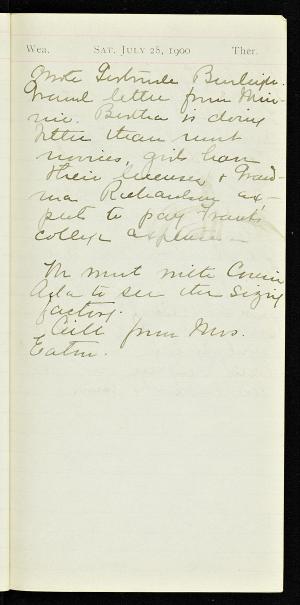 Wea. SAT. JULY 28, 1900 Ther.
Wrote Gertrude Burleigh.
Grand letter from Min-
nie. Bertha is doing
better than most
novices, girls have
their licenses & Grand-
ma Richardson ex-
pects to pay Frank's
college expenses
We went with Cousin
Ada to see the
factory.
Call from Mrs.
Eaton.